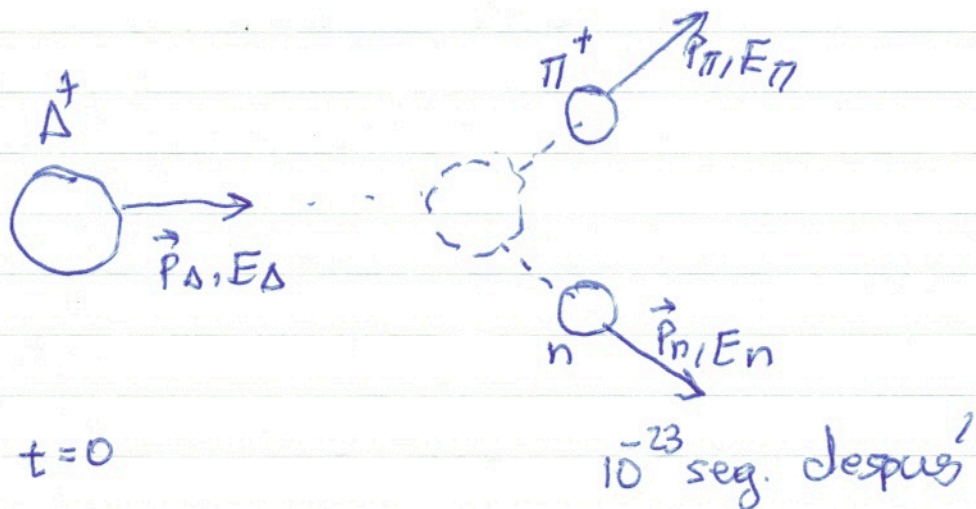 Δ⁺
π⁺
P_π, E_π
P⃗_Δ, E_Δ
n
P⃗_n, E_n
t = 0
10⁻²³ seg. despus